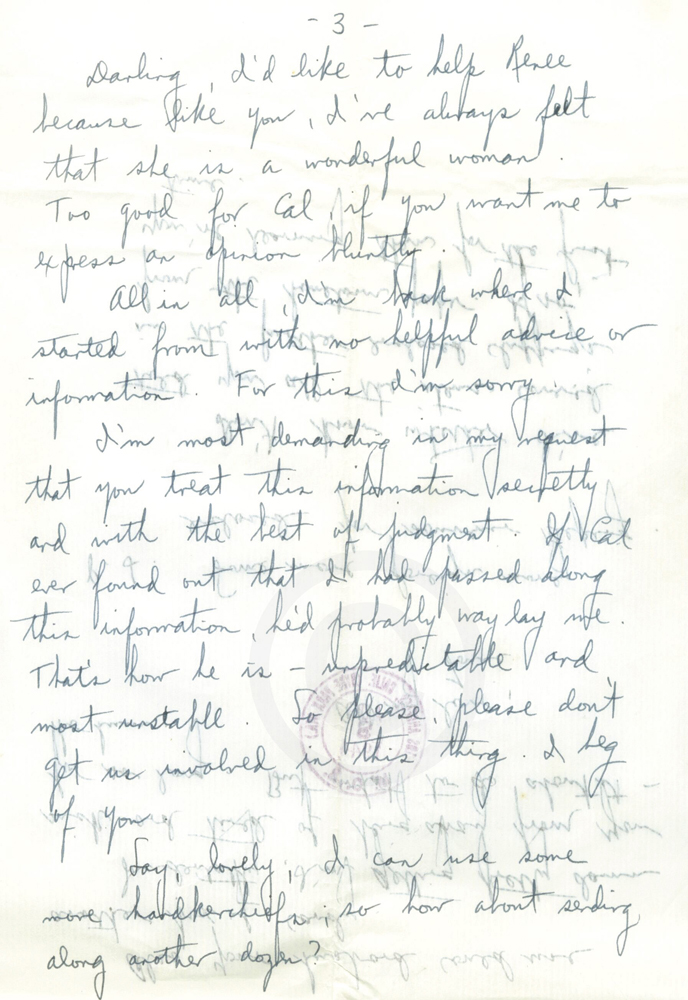 - 3 -
Darling, I'd like to help Renee
because like you, I've always felt
that she is a wonderful woman.
Too good for Cal, if you want me to
express an opinion bluntly.
All in all, I'm back where I
started from with no helpful advice or
information. For this I'm sorry.
I'm most demanding in my request
that you treat this information secretly
and with the best of judgment. If Cal
ever found out that I had passed along
this information, he'd probably way lay me.
That's how he is - unpredictable and
most unstable. So please, please don't
get us involved in this thing. I beg
of you.
Say, lovely, I can use some
more handkerchiefs, so how about sending
along another dozen?